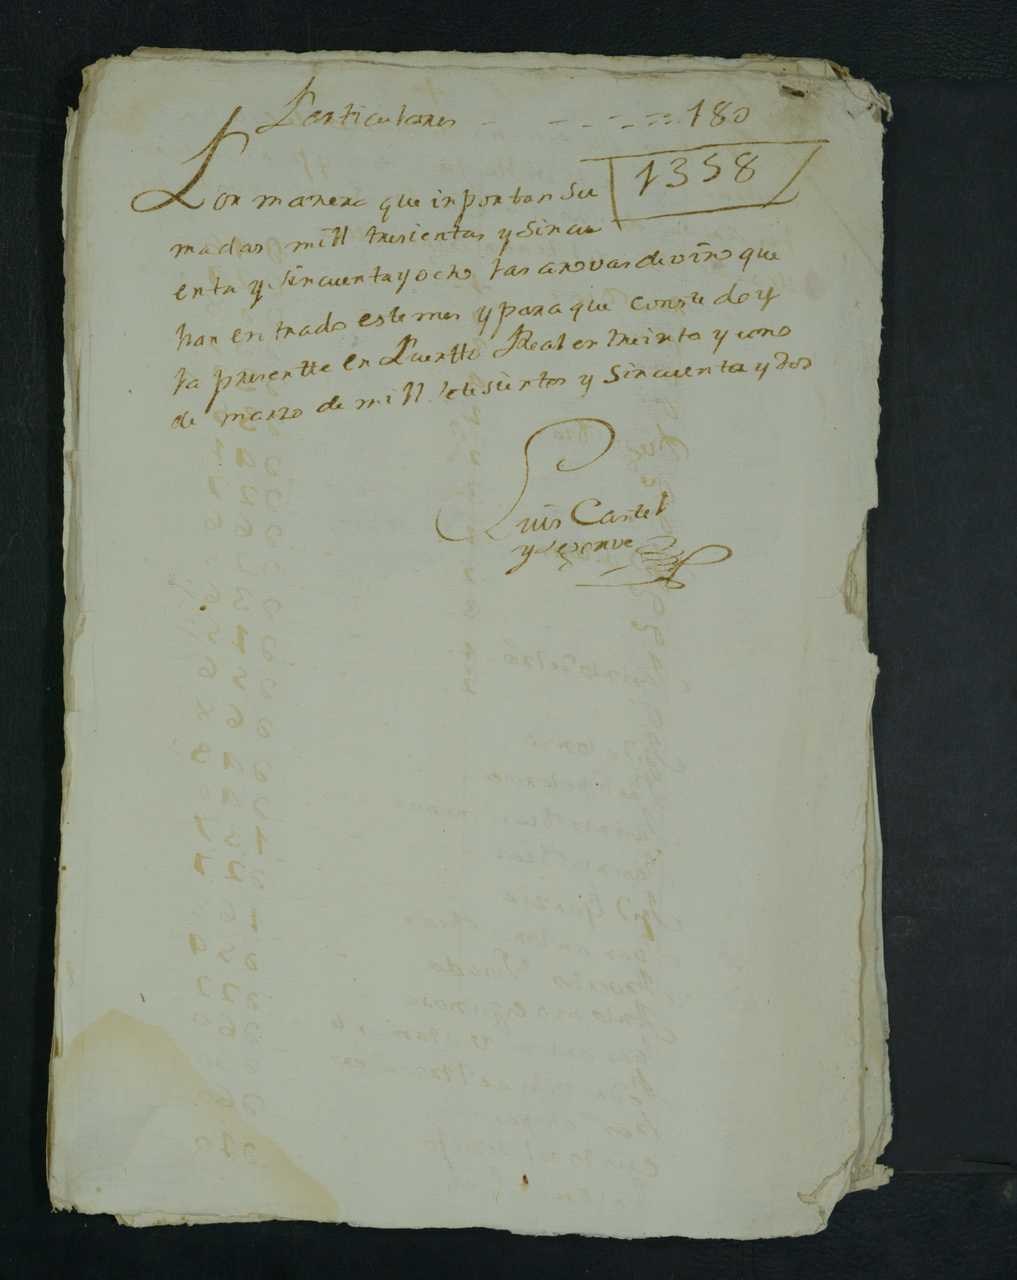 Particulares - - - - - - 180
1358
Por manera que inportan Su
madas mill tresientas y Sincu
enta y Sincuenta y ocho las arrovas de vino que
han entrado este mes y para que conste doy
la presentte en Puertto Real en treinta y uno
de marzo de mill setesientos y Sincuenta y dos
Luis Castel